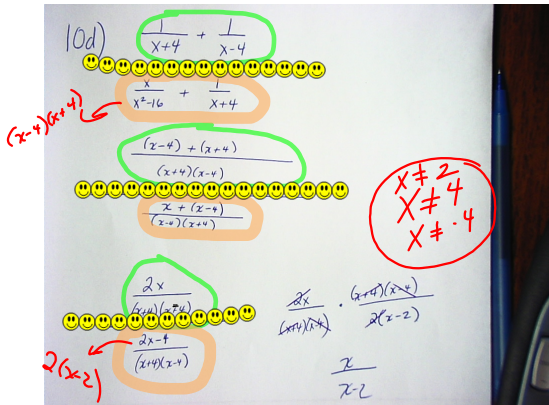 10d) 1/(x+4) + 1/(x-4)
x/(x²-16) + 1/(x+4)
(x-4)(x+4)
((x-4) + (x+4))/((x+4)(x-4))
(x + (x-4))/((x-4)(x+4))
x ≠ 2
x ≠ 4
x ≠ -4
2x/((x+4)(x-4))
(2x-4)/((x+4)(x-4))
2(x-2)
2x/((x+4)(x-4)) · ((x+4)(x-4))/(2(x-2))
x/(x-2)